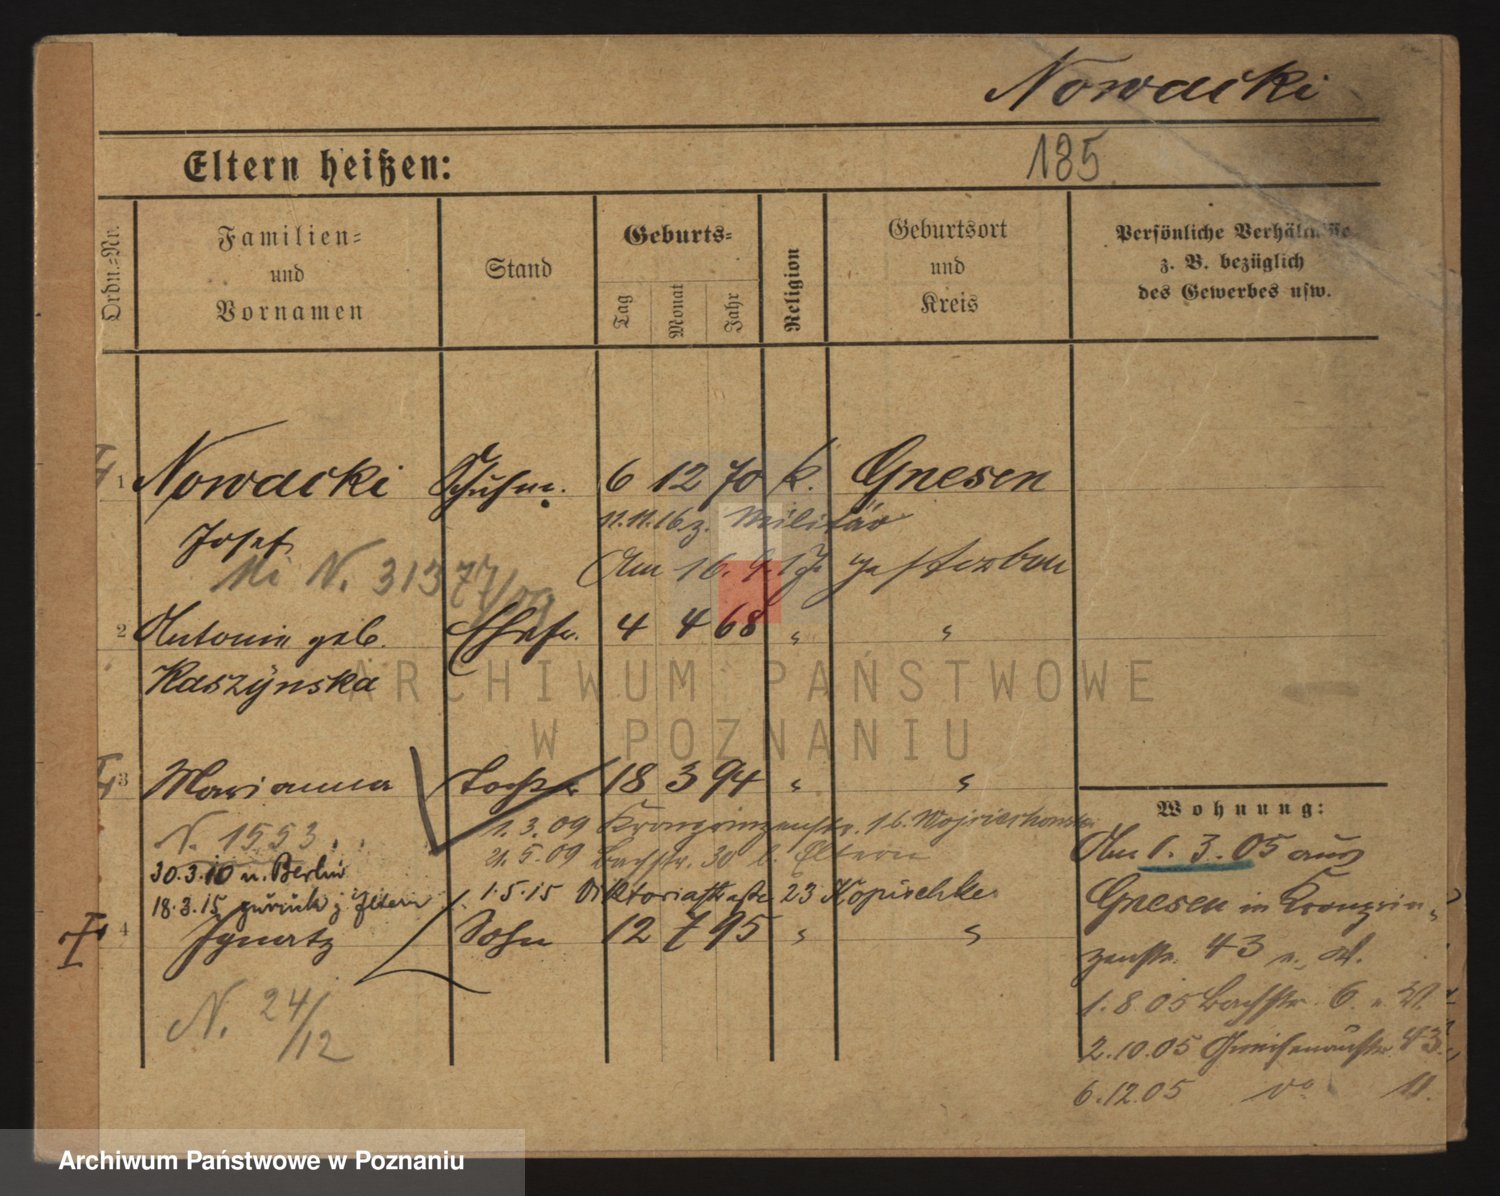 Nowacki
185
Eltern heißen:
Ordn.=Nr.
Familien=
und
Vornamen
Stand
Geburts=
Tag
Monat
Jahr
Religion
Geburtsort
und
Kreis
Persönliche Verhältnisse
z. B. bezüglich
des Gewerbes usw.
1 Nowacki Schuhm. 6 12 70 k. Gnesen
11.11.16 z. Militär
Josef
Am 16. gestorben
N. 31377/09
2 Antonie geb. Ehefr. 4 4 68 " "
Kaszynska
3 Marianna Tochter 18 3 94 " "
N. 1553.
1.3.09 Kronprinzenstr.
21.5.09 Bachstr. 30 b. Eltern
30.3.10 n. Berlin
1.5.15 Viktoriastraße 23 Kopischke
18.3.15 zurück z. Eltern
4 Ignatz Sohn 12 7 95 " "
N. 24/12
Wohnung:
Am 1.3.05 aus
Gnesen in Kronprin-
zenstr. 43
1.8.05 Bachstr. 6.
2.10.05 Gneisenaustr. 43
6.12.05 do 11.
ARCHIWUM PAŃSTWOWE
W POZNANIU
Archiwum Państwowe w Poznaniu